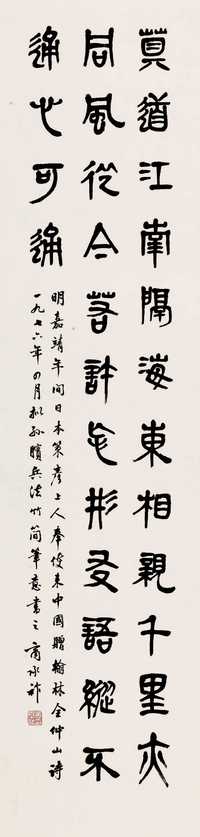 莫道江南隔海東相親千里亦
同風從今若許忘形友語縱不
通心可通
明嘉靖年間日本策彥上人奉使来中國贈翰林全仲山詩
一九七六年四月擬孫臏兵法竹簡筆意書之商承祚